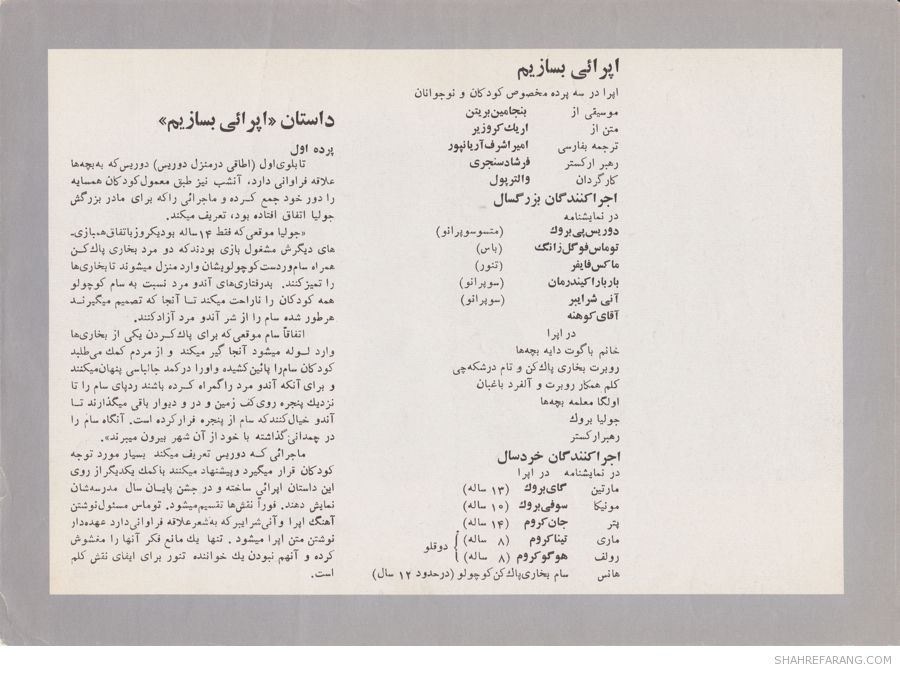 اپرائی بسازیم
اپرا در سه پرده مخصوص کودکان و نوجوانان
موسیقی از بنجامین‌بریتن
متن از اریك‌کروزیر
ترجمه بفارسی امیراشرف‌آریانپور
رهبر ارکستر فرشادسنجری
کارگردان والترپول
اجراکنندگان بزرگسال
در نمایشنامه
دوریس‌پی‌بروك (متسوسوپرانو)
توماس‌فوگل‌زانگ (باس)
ماکس‌فایفر (تنور)
باربارا‌کیندرمان (سوپرانو)
آنی شرایبر (سوپرانو)
آقای‌کوهنه
در اپرا
خانم باگوت دایه بچه‌ها
روبرت بخاری پاك‌کن و تام درشکه‌چی
کلم همکار روبرت و آلفرد باغبان
اولگا معلمه بچه‌ها
جولیا بروك
رهبرارکستر
اجراکنندگان خردسال
در نمایشنامه در اپرا
مارتین گای‌بروك (۱۳ ساله)
مونیکا سوفی‌بروك (۱۰ ساله)
پتر جان‌کروم (۱۴ ساله)
ماری تیناکروم (۸ ساله)
رولف هوگوکروم (۸ ساله) دوقلو
هانس سام بخاری‌پاك‌کن‌کوچولو (درحدود ۱۲ سال)
داستان «اپرائی بسازیم»
پرده اول
تابلوی‌اول (اطاقی درمنزل دوریس) دوریس‌که به‌بچه‌ها
علاقه فراوانی دارد، آنشب نیز طبق معمول‌کودکان همسایه
را دور خود جمع کرده و ماجرائی راکه برای مادر بزرگش
جولیا اتفاق افتاده بود، تعریف میکند.
«جولیا موقعی‌که فقط ۱۴ساله بودیکروزباتفاق‌همبازی‌ـ
های دیگرش مشغول بازی بودندکه دو مرد بخاری پاك‌کن
همراه سام‌وردست‌کوچولویشان وارد منزل میشوند تابخاری‌ها
را تمیزکنند. بدرفتاری‌های آندو مرد نسبت به سام کوچولو
همه کودکان را ناراحت میکند تا آنجا که تصمیم میگیرند
هرطور شده سام را از شر آندو مرد آزادکنند.
اتفاقاً سام موقعی‌که برای پاك‌کردن یکی از بخاری‌ها
وارد لوله میشود آنجا گیر میکند و از مردم کمك می‌طلبد
کودکان سام‌را پائین‌کشیده واورا درکمد جالباسی پنهان‌میکنند
و برای آنکه آندو مرد راگمراه کرده باشند ردپای سام را تا
نزدیك پنجره روی‌کف زمین و در و دیوار باقی میگذارند تا
آندو خیال‌کنندکه سام از پنجره فرارکرده است. آنگاه سام را
در چمدانی‌گذاشته با خود از آن شهر بیرون میبرند».
ماجرائی که دوریس تعریف میکند بسیار مورد توجه
کودکان قرار میگیرد وپیشنهاد میکنند باکمك یکدیگر از روی
این داستان اپرائی ساخته و در جشن پایان سال مدرسه‌شان
نمایش دهند. فوراً نقش‌ها تقسیم‌میشود. توماس مسئول‌نوشتن
آهنگ اپرا وآنی‌شرایبرکه به‌شعرعلاقه فراوانی‌دارد عهده‌دار
نوشتن متن اپرا میشود. تنها یك مانع فکر آنها را مغشوش
کرده و آنهم نبودن یك خواننده تنور برای ایفای نقش کلم
است.
SHAHREFARANG.COM